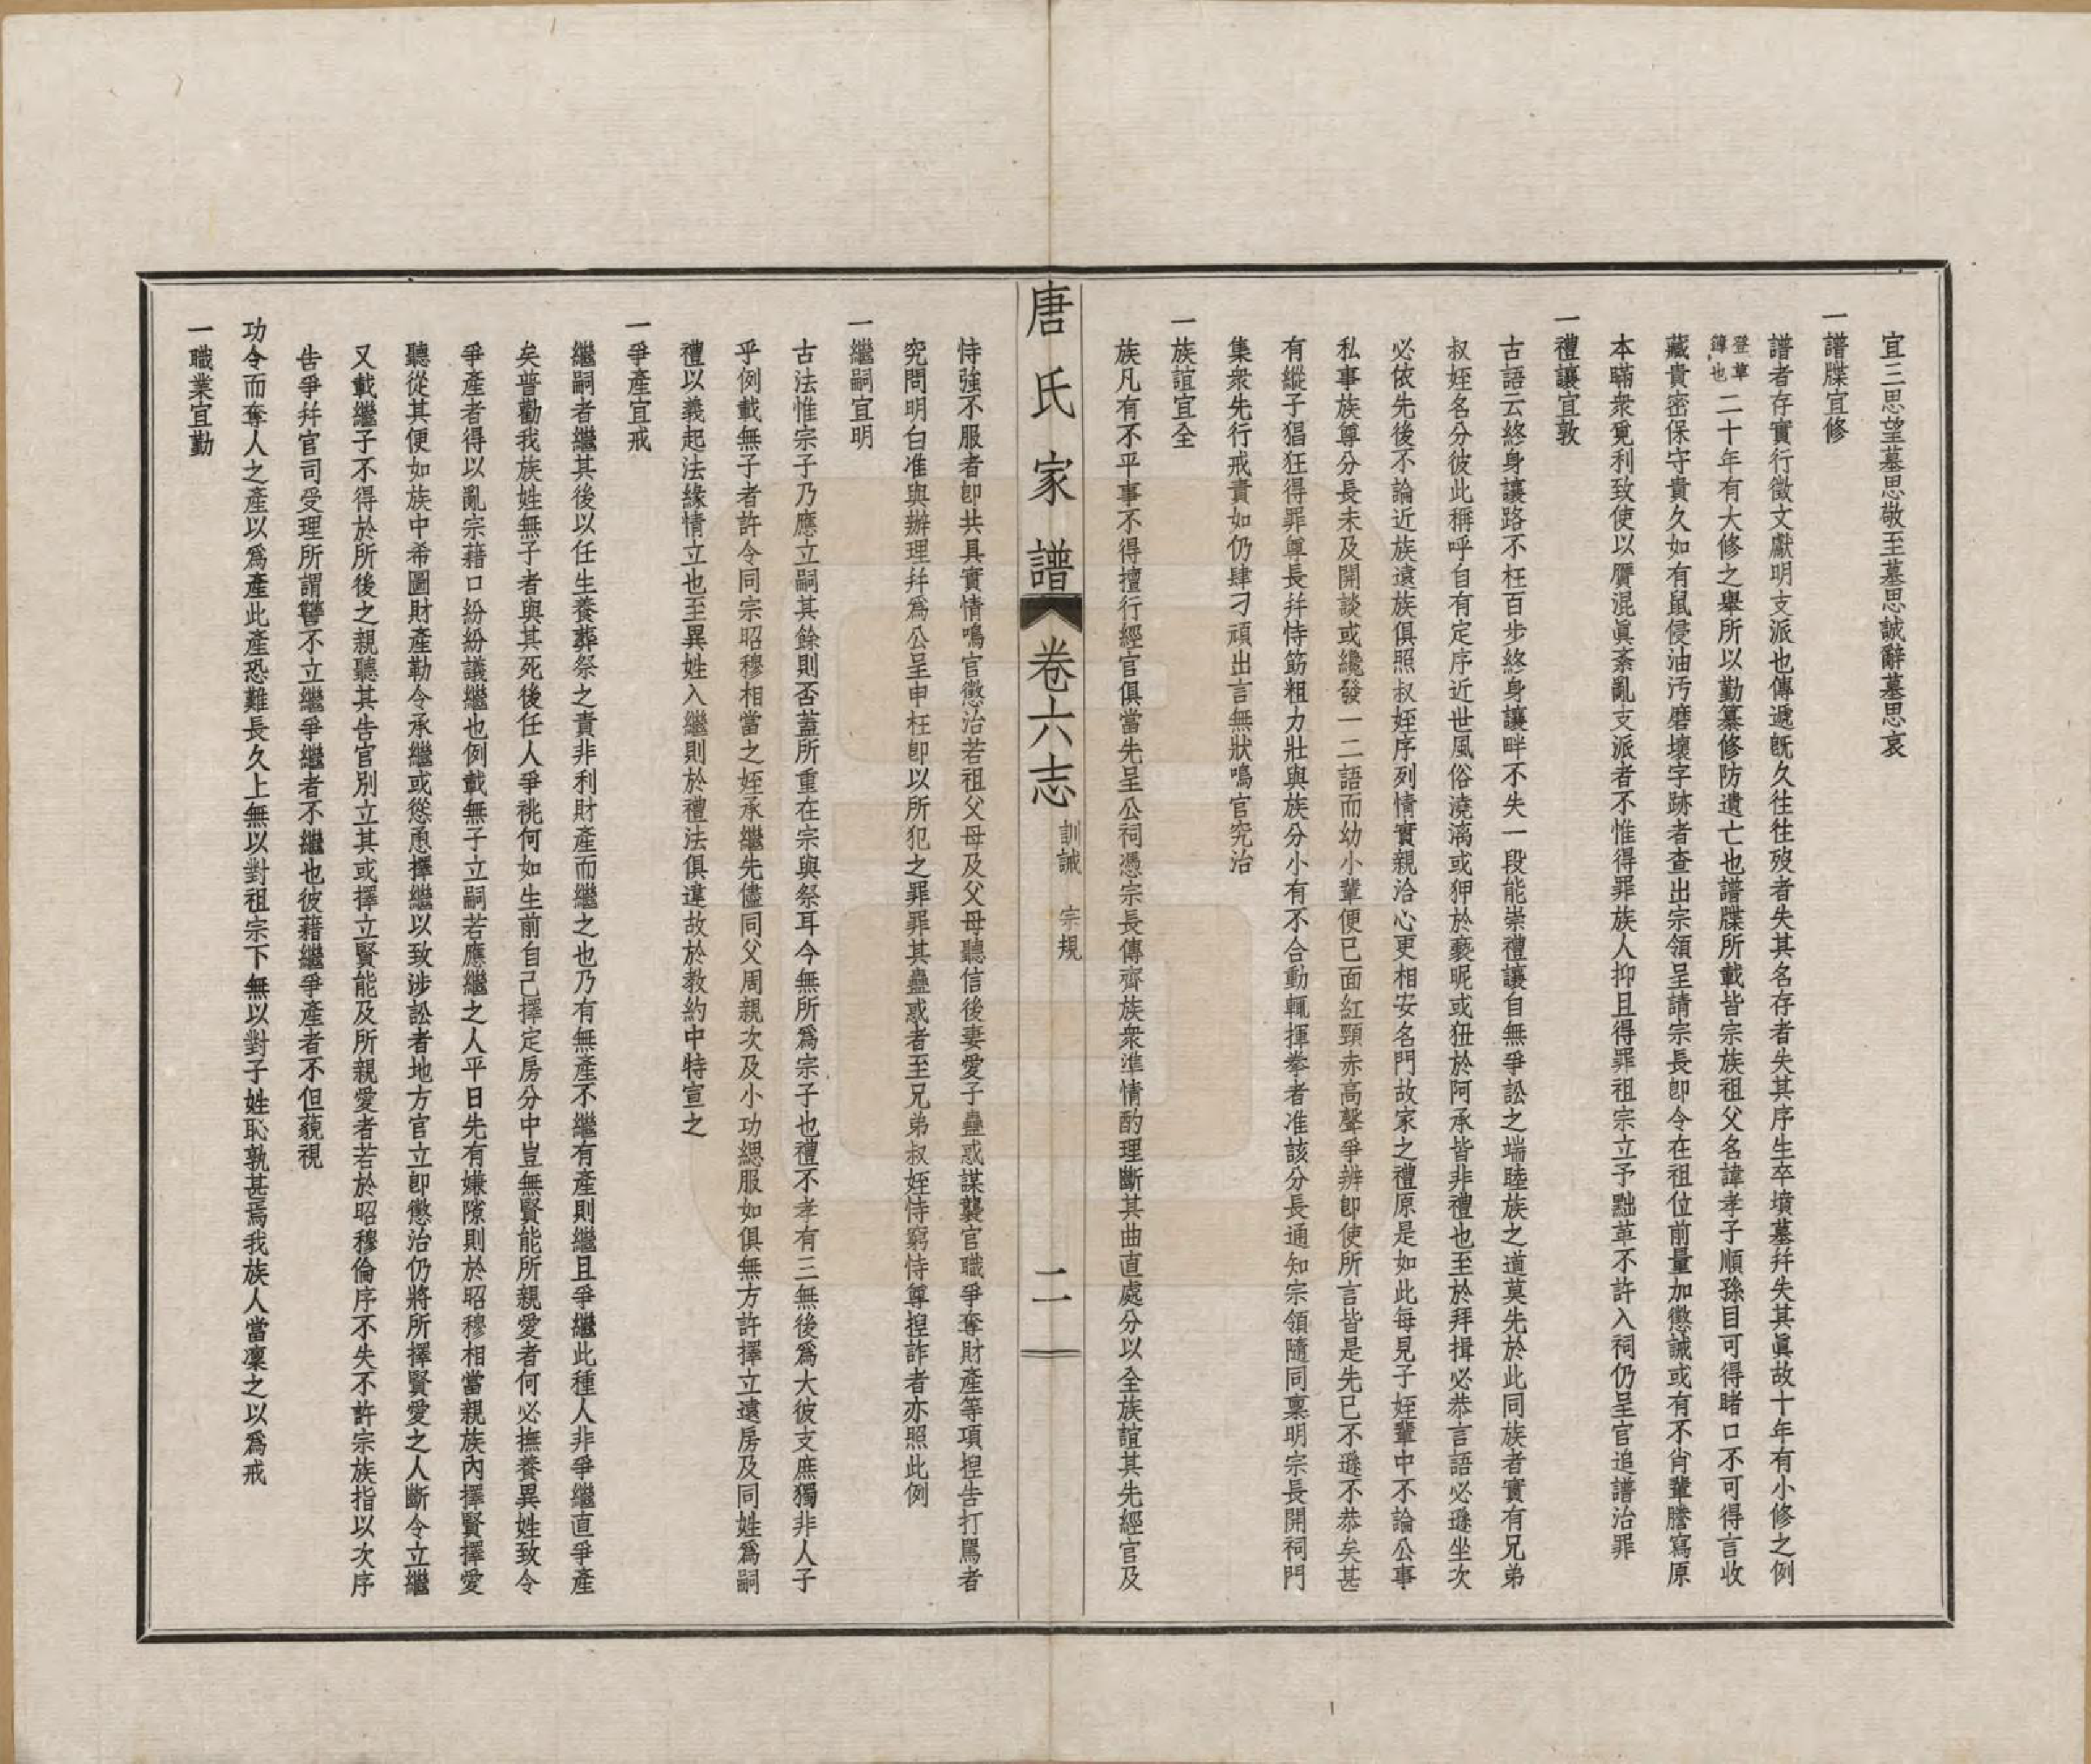 宜三思望墓思敬至墓思誠辭墓思哀
一譜牒宜修
譜者存實行徵文獻明支派也傳遞旣久往往歿者失其名存者失其序生卒墳墓幷失其眞故十年有小修之例
登草簿也二十年有大修之舉所以勤纂修防遺亡也譜牒所載皆宗族祖父名諱孝子順孫目可得睹口不可得言收
藏貴密保守貴久如有鼠侵油汚磨壞字跡者查出宗領呈請宗長卽令在祖位前量加懲誡或有不肖輩謄寫原
本瞞衆覓利致使以贋混眞紊亂支派者不惟得罪族人抑且得罪祖宗立予黜革不許入祠仍呈官追譜治罪
一禮讓宜敦
古語云終身讓路不枉百步終身讓畔不失一段能崇禮讓自無爭訟之端睦族之道莫先於此同族者實有兄弟
叔姪名分彼此稱呼自有定序近世風俗澆漓或狎於褻昵或狃於阿承皆非禮也至於拜揖必恭言語必遜坐次
必依先後不論近族遠族俱照叔姪序列情實親洽心更相安名門故家之禮原是如此每見子姪輩中不論公事
私事族尊分長未及開談或纔發一二語而幼小輩便已面紅頸赤高聲爭辨卽使所言皆是先已不遜不恭矣甚
有縱子猖狂得罪尊長幷恃筋粗力壯與族分小有不合動輒揮拳者准該分長通知宗領隨同稟明宗長開祠門
集衆先行戒責如仍肆刁頑出言無狀鳴官究治
一族誼宜全
族凡有不平事不得擅行經官俱當先呈公祠憑宗長傳齊族衆準情酌理斷其曲直處分以全族誼其先經官及
唐氏家譜 卷六志 訓誡 宗規 二
恃強不服者卽共具實情鳴官懲治若祖父母及父母聽信後妻愛子蠱惑謀襲官職爭奪財產等項揑告打罵者
究問明白准與辦理幷爲公呈申枉卽以所犯之罪罪其蠱惑者至兄弟叔姪恃窮恃尊揑詐者亦照此例
一繼嗣宜明
古法惟宗子乃應立嗣其餘則否蓋所重在宗與祭耳今無所爲宗子也禮不孝有三無後爲大彼支庶獨非人子
乎例載無子者許令同宗昭穆相當之姪承繼先儘同父周親次及小功緦服如俱無方許擇立遠房及同姓爲嗣
禮以義起法緣情立也至異姓入繼則於禮法俱違故於教約中特宣之
一爭產宜戒
繼嗣者繼其後以任生養葬祭之責非利財產而繼之也乃有無產不繼有產則繼且爭繼此種人非爭繼直爭產
矣普勸我族姓無子者與其死後任人爭祧何如生前自己擇定房分中豈無賢能所親愛者何必撫養異姓致令
爭產者得以亂宗藉口紛紛議繼也例載無子立嗣若應繼之人平日先有嫌隙則於昭穆相當親族內擇賢擇愛
聽從其便如族中希圖財產勒令承繼或慫恿擇繼以致涉訟者地方官立卽懲治仍將所擇賢愛之人斷令立繼
又載繼子不得於所後之親聽其告官別立其或擇立賢能及所親愛者若於昭穆倫序不失不許宗族指以次序
告爭幷官司受理所謂讐不立繼爭繼者不繼也彼藉繼爭產者不但藐視
功令而奪人之產以爲產此產恐難長久上無以對祖宗下無以對子姓恥孰甚焉我族人當凜之以爲戒
一職業宜勤